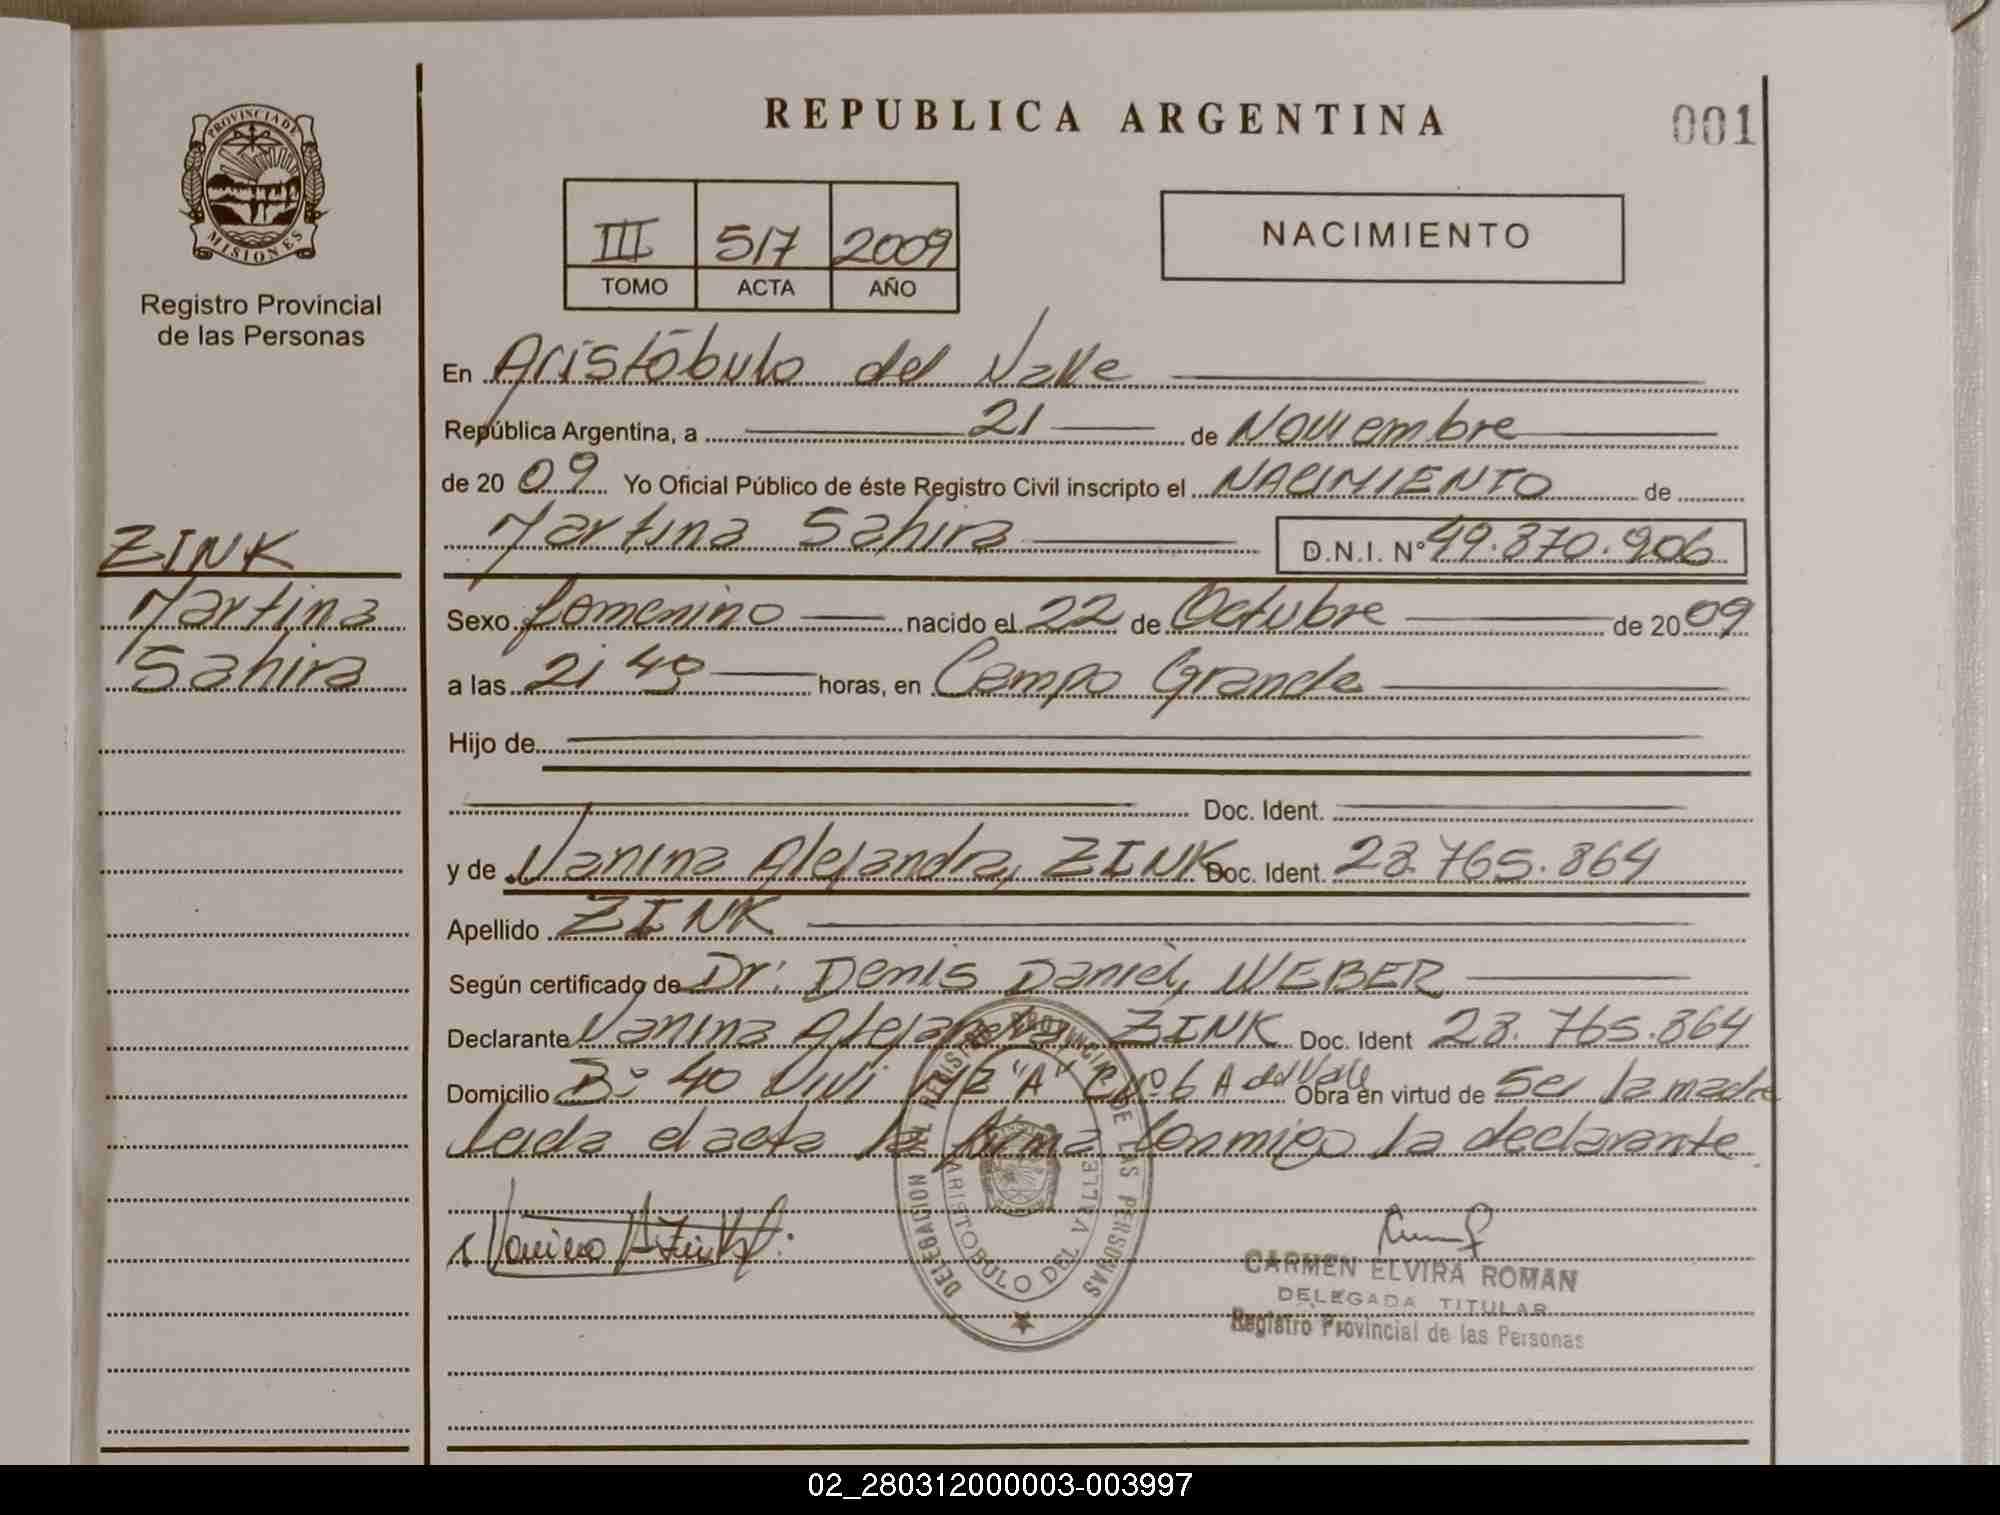 REPUBLICA ARGENTINA
001
PROVINCIA DE
MISIONES
Registro Provincial
de las Personas
III 517 2009
TOMO ACTA AÑO
NACIMIENTO
ZINK
Martina
Sahira
En Aristóbulo del Valle
República Argentina, a 21 de Noviembre
de 20 09 Yo Oficial Público de éste Registro Civil inscripto el NACIMIENTO de
Martina Sahira D.N.I. Nº 49.870.906
Sexo femenino nacido el 22 de Octubre de 20 09
a las 21 horas, en Campo Grande
Hijo de
Doc. Ident.
y de Vanina Alejandra, ZINK Doc. Ident. 28.765.864
Apellido ZINK
Según certificado de Dr: Denis Daniel, WEBER
Declarante Vanina Alejandra ZINK Doc. Ident 28.765.864
Domicilio Bº 40 Vivi "A" Cº 6 A del Valle Obra en virtud de Ser la madre
Leida el acta la firma Conmigo la declarante.
DELEGACION DEL REGISTRO PROVINCIAL DE LAS PERSONAS
ARISTOBULO DEL VALLE
CARMEN ELVIRA ROMAN
DELEGADA TITULAR
Registro Provincial de las Personas
02_280312000003-003997